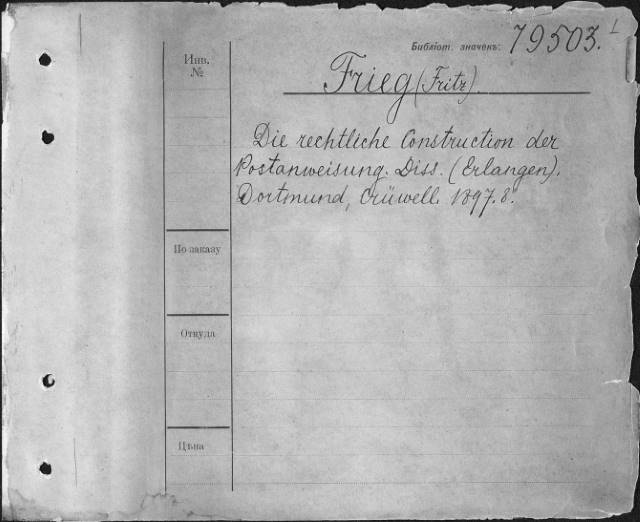 Библіот. значекъ: 79503.
Инв.
№
Frieg (Fritz).
Die rechtliche Construction der
Postanweisung. Diss. (Erlangen).
Dortmund, Crüwell. 1897. 8.
По заказу
Откуда
Цѣна